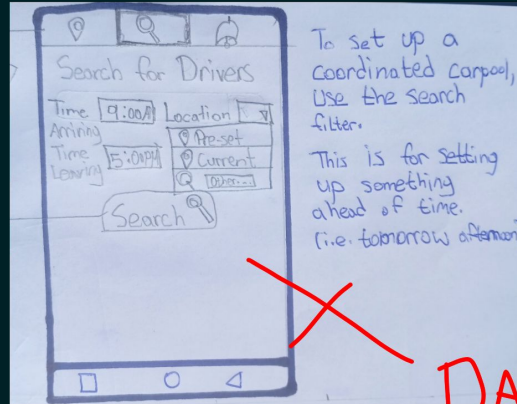 Search for Drivers
Time Arriving 9:00A
Location
Pre-set
Time Leaving 5:00PM
Current
Other...
Search
To set up a
coordinated carpool,
use the search
filter.
This is for setting
up something
ahead of time.
(i.e. tomorrow afternoon
DA